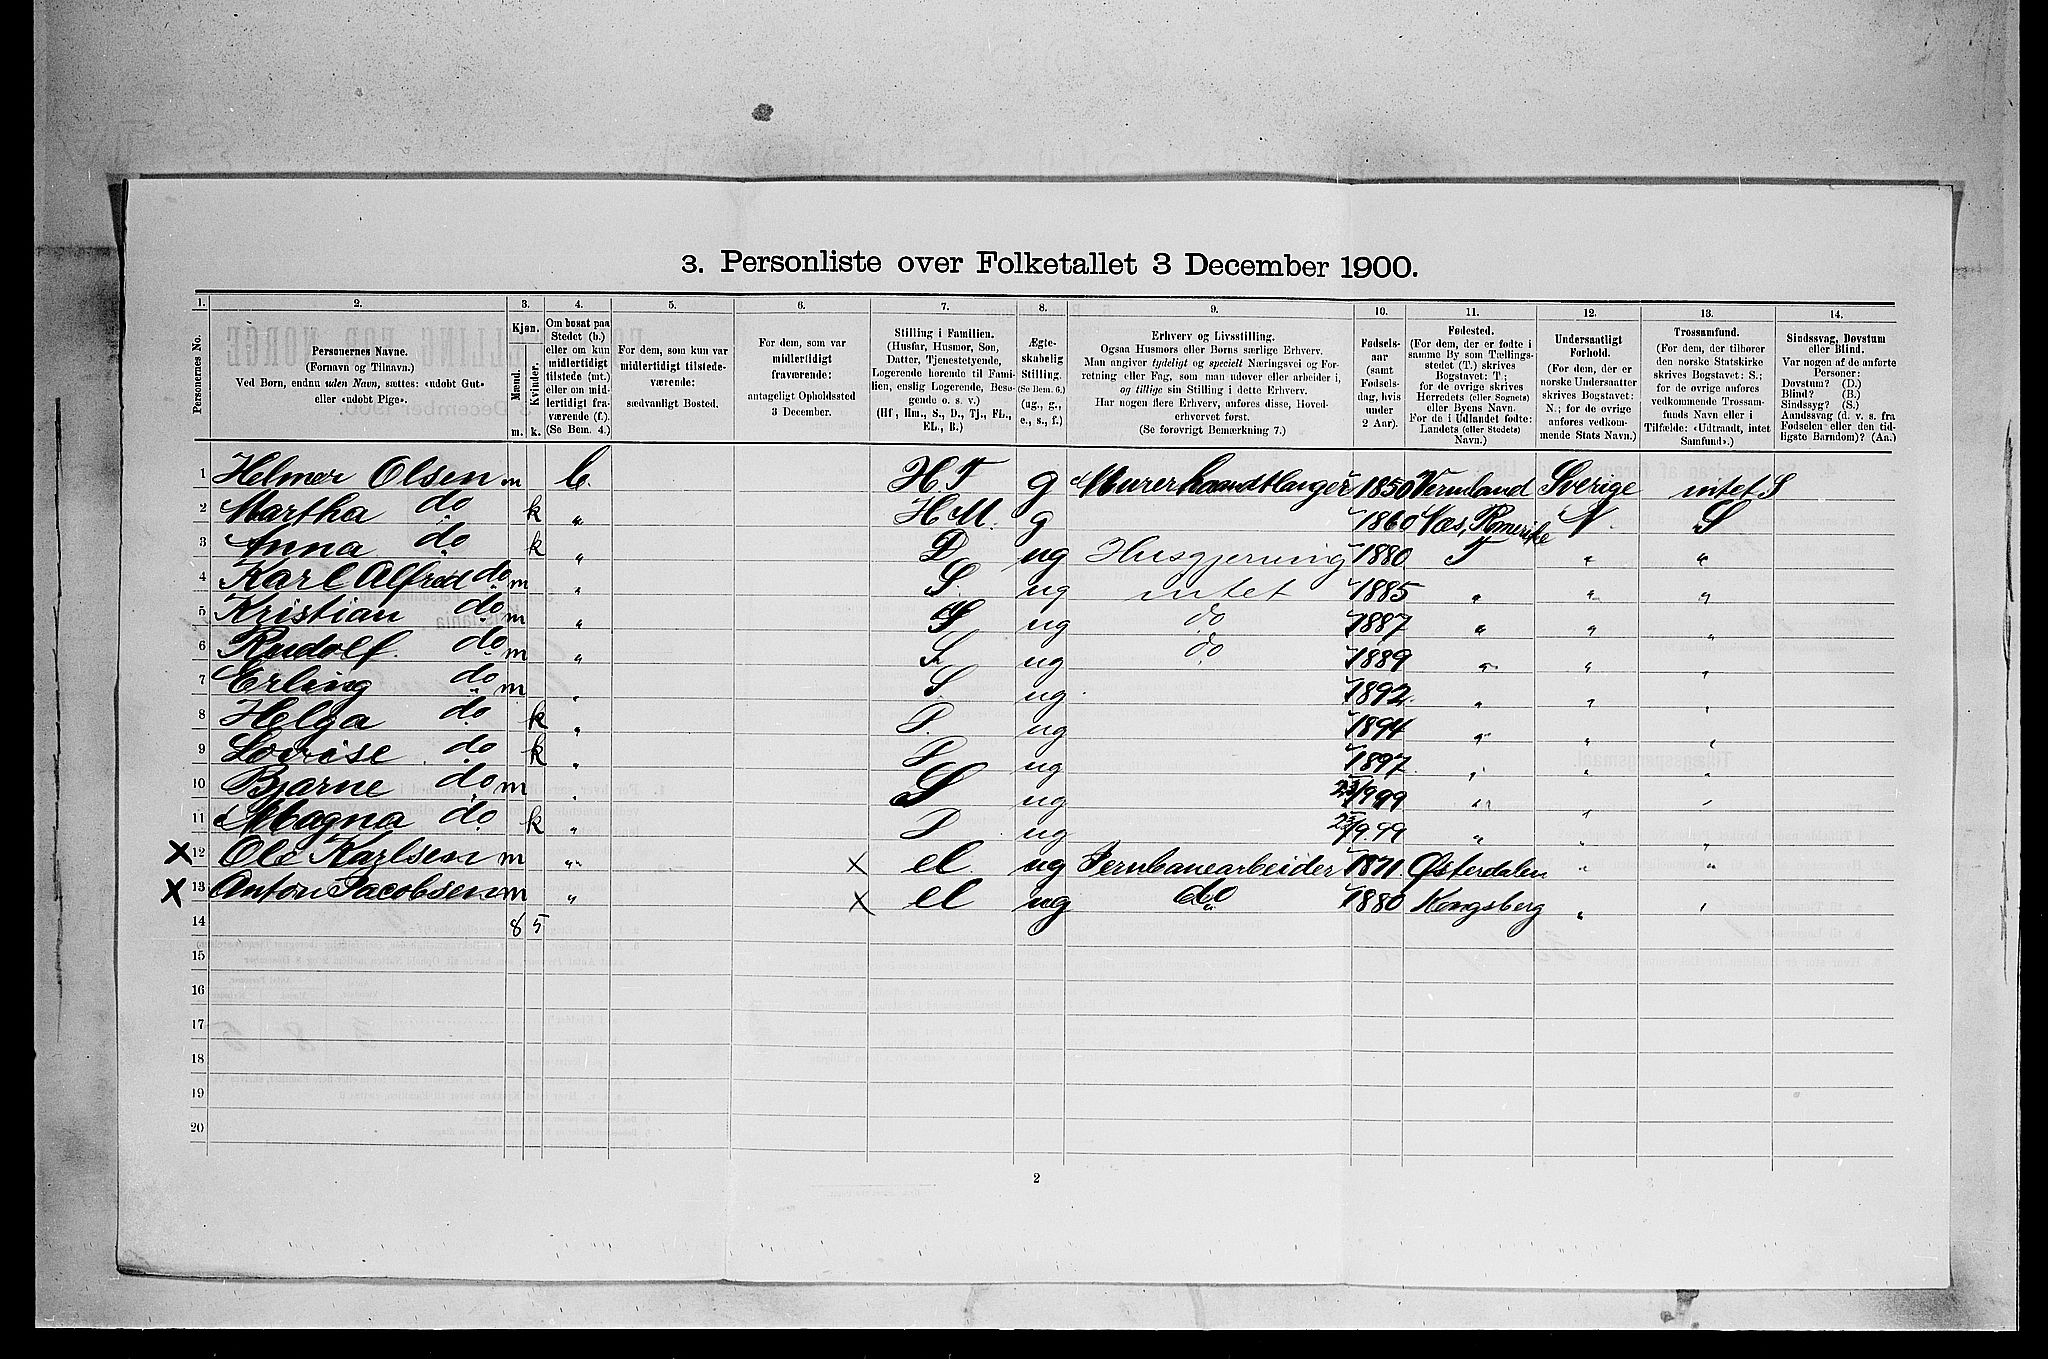 3. Personliste over Folketallet 3 December 1900.
1. 2. 3. 4. 5. 6. 7. 8. 9. 10. 11. 12. 13. 14.
Personernes No.
Personernes Navne.
(Fornavn og Tilnavn.)
Ved Børn, endnu uden Navn, sættes: «udøbt Gut»
eller «udøbt Pige».
Kjøn.
Mænd.
Kvinder.
m. k.
Om bosat paa
Stedet (b.)
eller om kun
midlertidigt
tilstede (mt.)
eller om mid-
lertidigt fra-
værende (f.).
(Se Bem. 4.)
For dem, som kun var
midlertidigt tilstede-
værende:
sædvanligt Bosted.
For dem, som var
midlertidigt
fraværende:
antageligt Opholdssted
3 December.
Stilling i Familien.
(Husfar, Husmor, Søn,
Datter, Tjenestetyende,
Logerende hørende til Fami-
lien, enslig Logerende, Besø-
gende o. s. v.)
(Hf., Hm., S., D., Tj., FL.,
EL., B.)
Ægte-
skabelig
Stilling.
(Se Bem. 6.)
(ug., g.,
e., s., f.)
Erhverv og Livsstilling.
Ogsaa Husmors eller Børns særlige Erhverv.
Man angiver tydeligt og specielt Næringsvei og For-
retning eller Fag, som man udøver eller arbeider i,
og tillige sin Stilling i dette Erhverv.
Har nogen flere Erhverv, anføres disse, Hoved-
erhvervet først.
(Se forøvrigt Bemærkning 7.)
Fødsels-
aar
(samt
Fødsels-
dag, hvis
under
2 Aar).
Fødested.
(For dem, der er fødte i
samme By som Tællings-
stedet (T.) skrives
Bogstavet: T.;
for de øvrige skrives
Herredets (eller Sognets)
eller Byens Navn.
For de i Udlandet fødte:
Landets (eller Stedets)
Navn.)
Undersaatligt
Forhold.
(For dem, der er
norske Undersaatter
skrives Bogstavet:
N.; for de øvrige
anføres vedkom-
mende Stats Navn.)
Trossamfund.
(For dem, der tilhører
den norske Statskirke
skrives Bogstavet: S.;
for de øvrige anføres
vedkommende Trossam-
funds Navn eller i
Tilfælde: «Udtraadt, intet
Samfund».)
Sindssvag, Døvstum
eller Blind.
Var nogen af de anførte
Personer:
Døvstum? (D.)
Blind? (B.)
Sindssyg? (S.)
Aandssvag (d. v. s. fra
Fødselen eller den tid-
ligste Barndom)? (Aa.)
1 Helmer Olsen m b. H F g Murerhaandtlanger 1850 Vermland Sverige intet S
2 Martha do k " H M. g 1860 Næs, Romerike N S
3 Anna do k " D ug Husgjerning 1880 T " "
4 Karl Alfred do m " S. ug intet 1885 " " "
5 Kristian do m " S ug do 1887 " " "
6 Rudolf. do m " S. ug do 1889 " " "
7 Erling do m " S. ug. 1892. " " "
8 Helga do k " D. ug 1894 " " "
9 Lovise do k " D ug 1897. " " "
10 Bjarne do m " S ug 23/9 99 " " "
11 Magna do k " D ug 23/9.99 " " "
x 12 Ole Karlsen m " x el ug Jernbanearbeider 1871 Østerdalen " "
x 13 Anton Jacobsen m " x el ug do 1880 Kongsberg " "
14 8 5
15
16
17
18
19
20
2